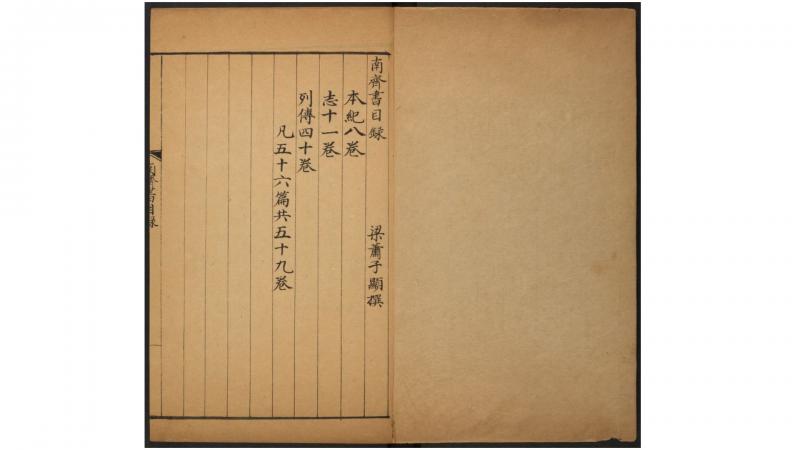 南齊書目錄
梁蕭子顯撰
本紀八卷
志十一卷
列傳四十卷
凡五十六篇共五十九卷
南齊書目錄